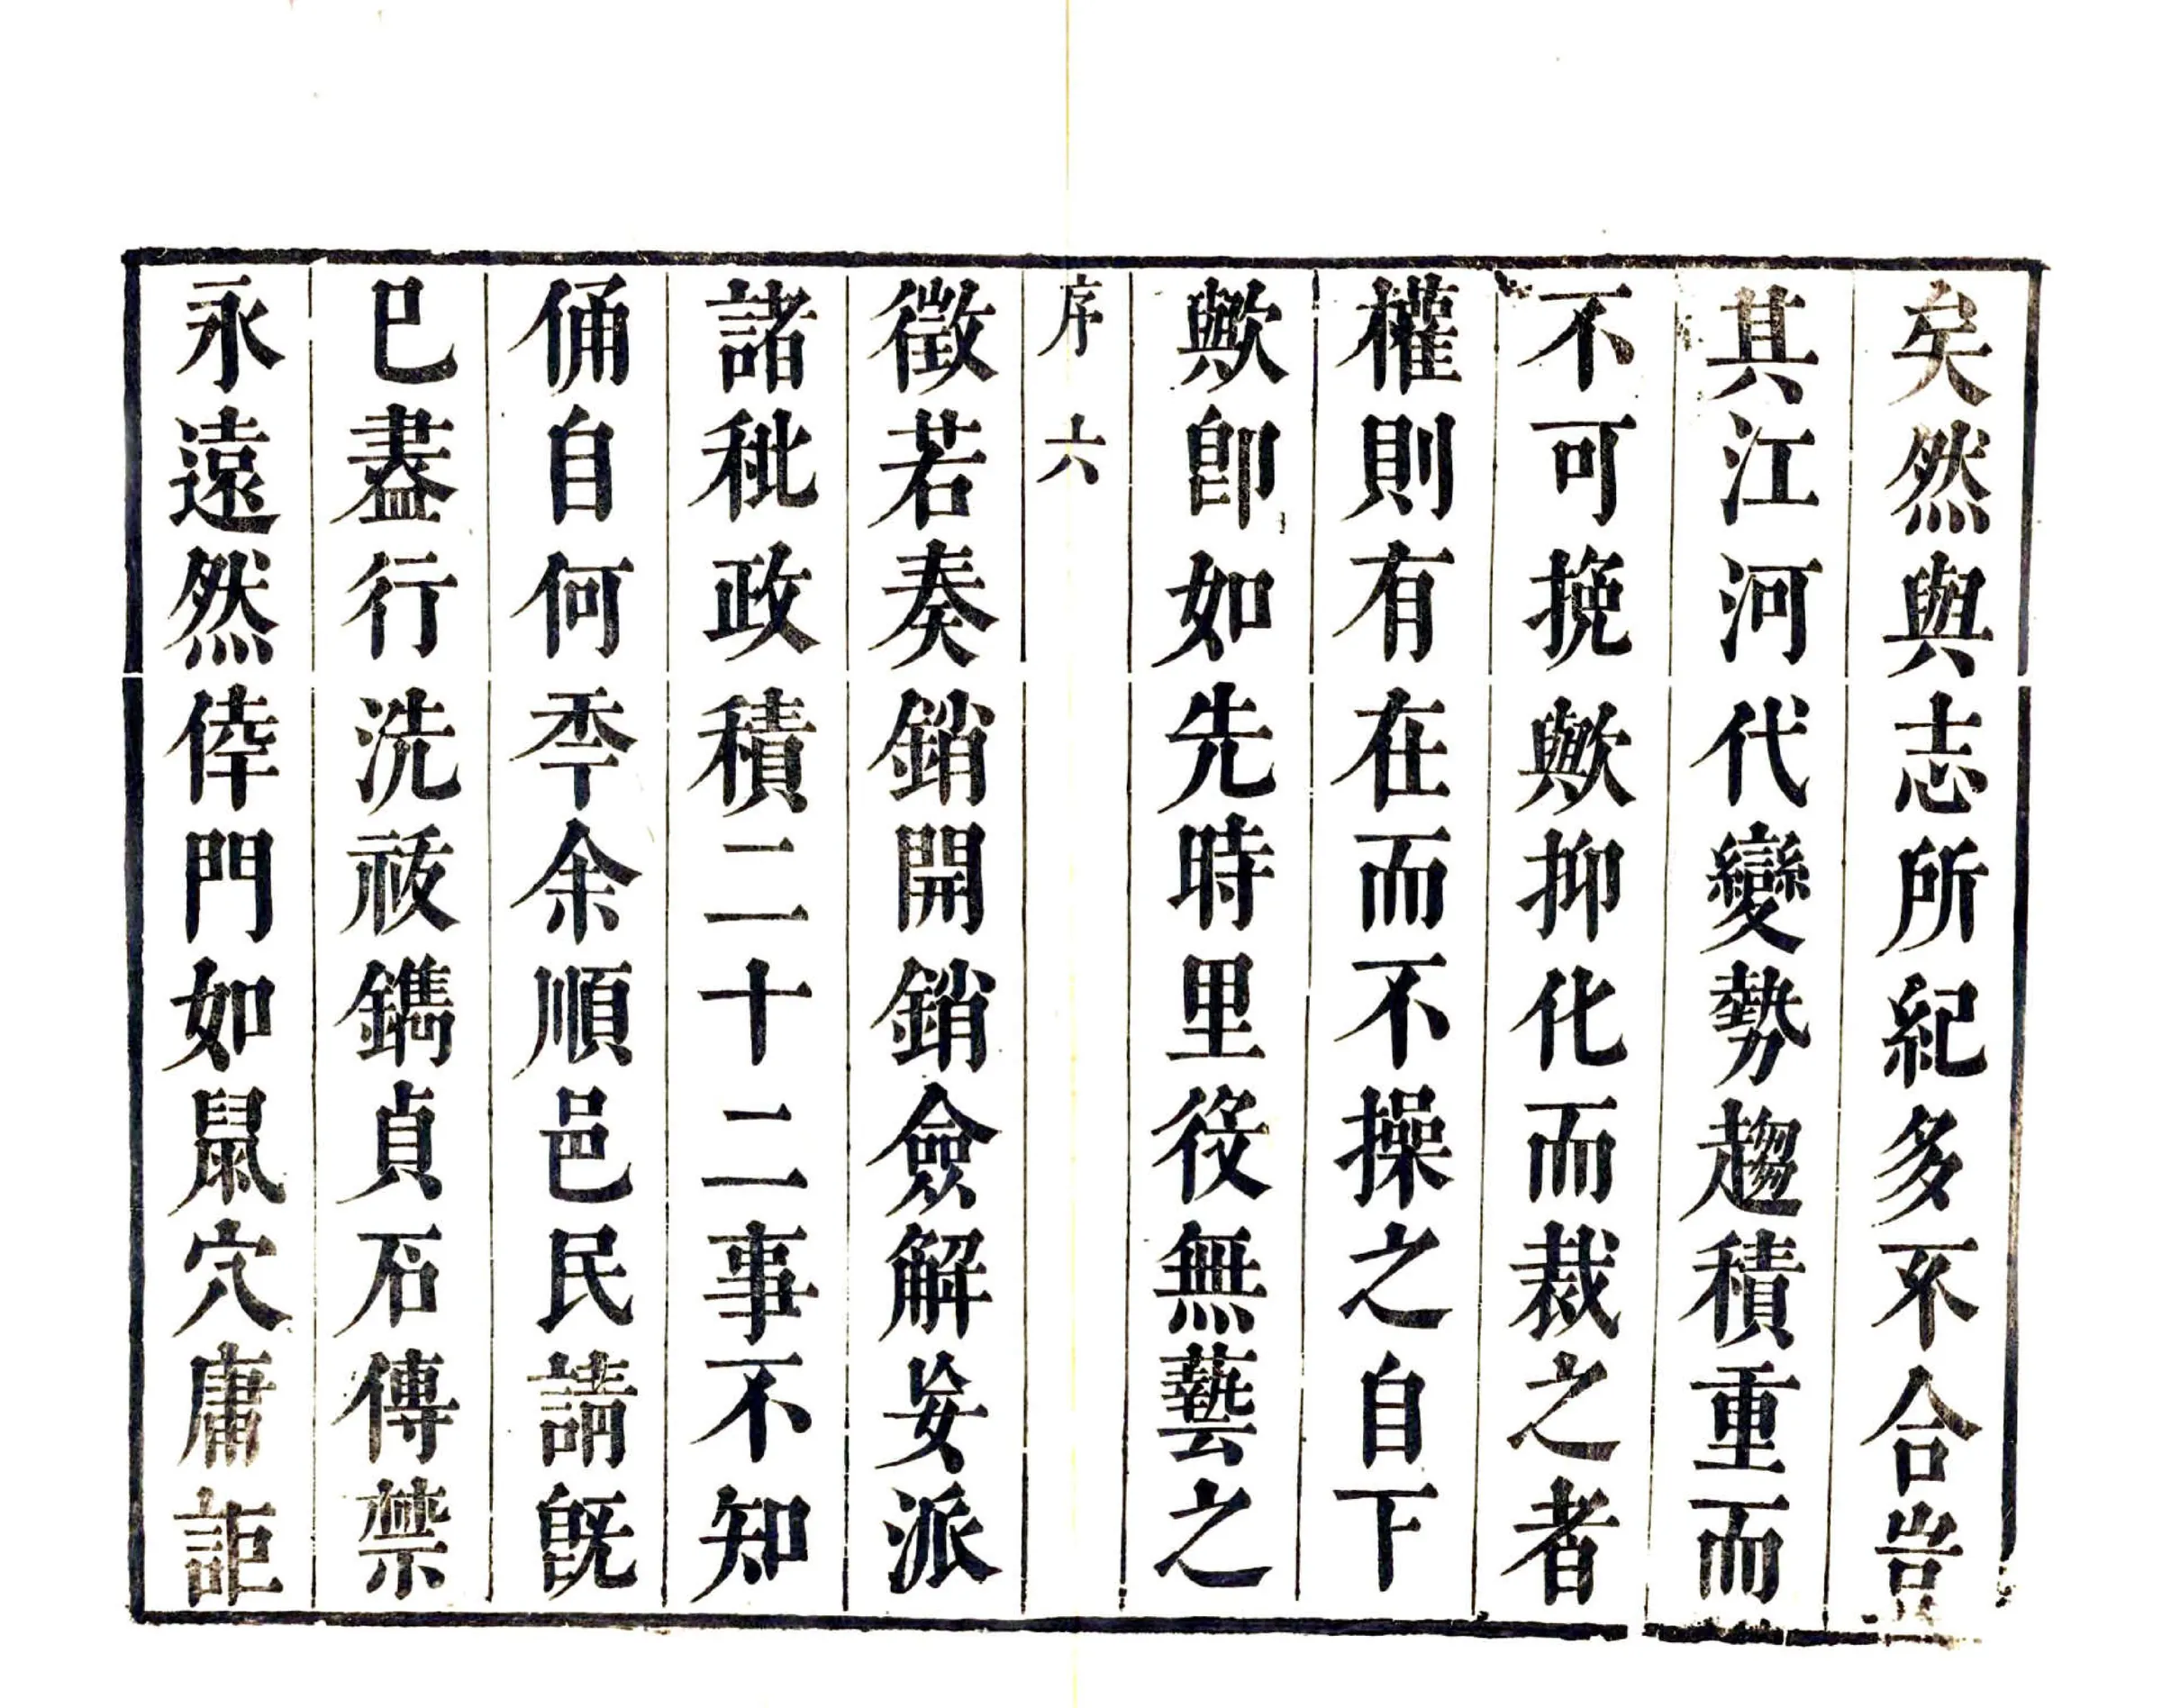 矣然與志所紀多不合豈
其江河代變勢趨積重而
不可挽歟抑化而裁之者
權則有在而不操之自下
歟卽如先時里役無藝之
序 六
徵若奏銷開銷僉解妄派
諸秕政積二十二事不知
俑自何秊余順邑民請旣
巳盡行洗祓鐫貞石傳禁
永遠然倖門如鼠穴庸詎